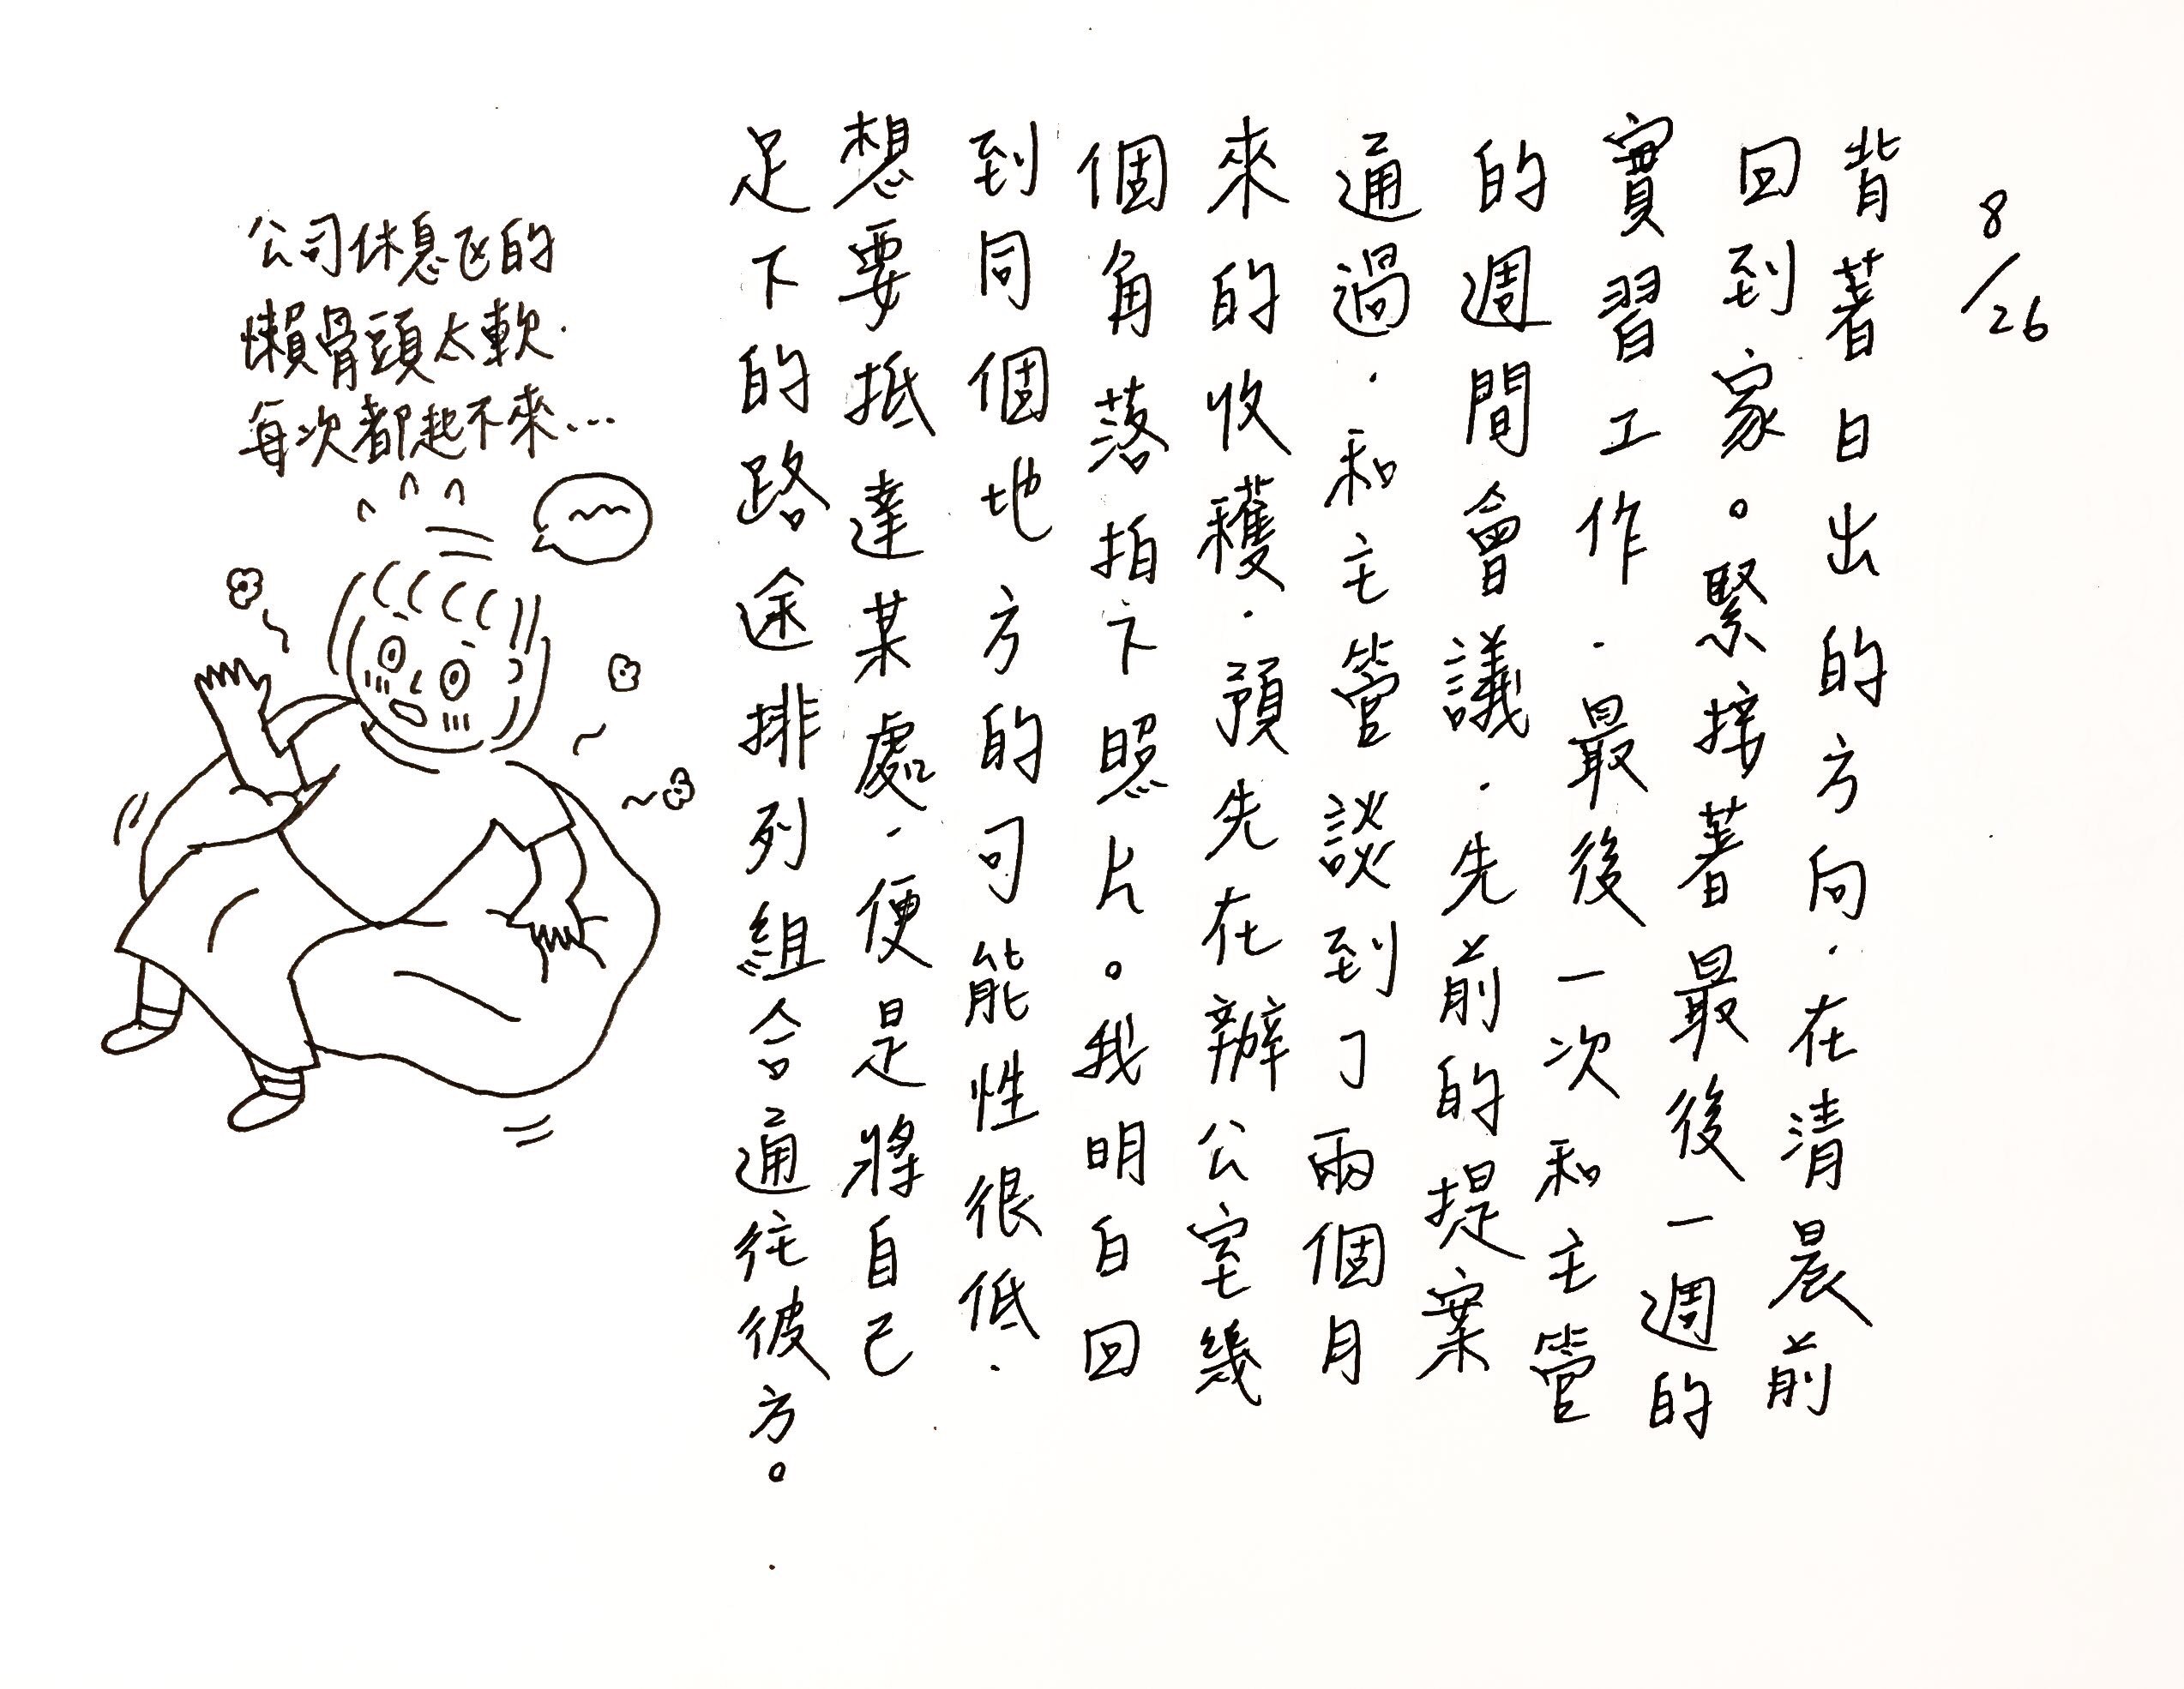 8/26
背著日出的方向．在清晨前
回到家。緊接著最後一週的
實習工作．最後一次和主管
的週間會議．先前的提案
通過．和主管談到了兩個月
來的收穫．預先在辦公室幾
個角落拍下照片。我明白回
到同個地方的可能性很低．
想要抵達某處．便是將自己
足下的路途排列組合通往彼方。
公司休息区的
懶骨頭太軟．
每次都起不來...